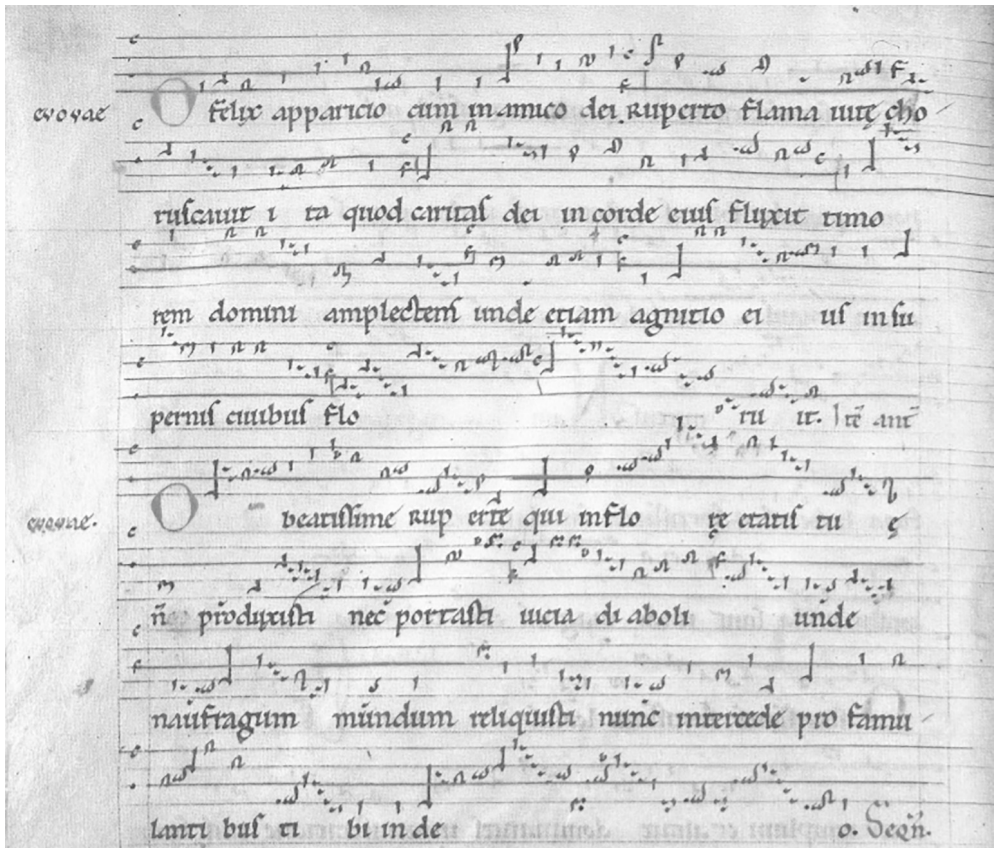 evovae O felix apparicio cum in amico dei Ruperto flama uitę cho
ruscauit i ta quod caritas dei in corde eius fluxit timo
rem domini amplectens unde etiam agnitio ei us in su
pernis ciuibus flo ru it. Itē ant
evovae. O beatissime Rup erte qui in flo re etatis tu ę
n̄ produxisti nec portasti uicia di aboli unde
naufragum mundum reliquisti nunc intercede pro famu
lanti bus ti bi in de o. Seqn̄.